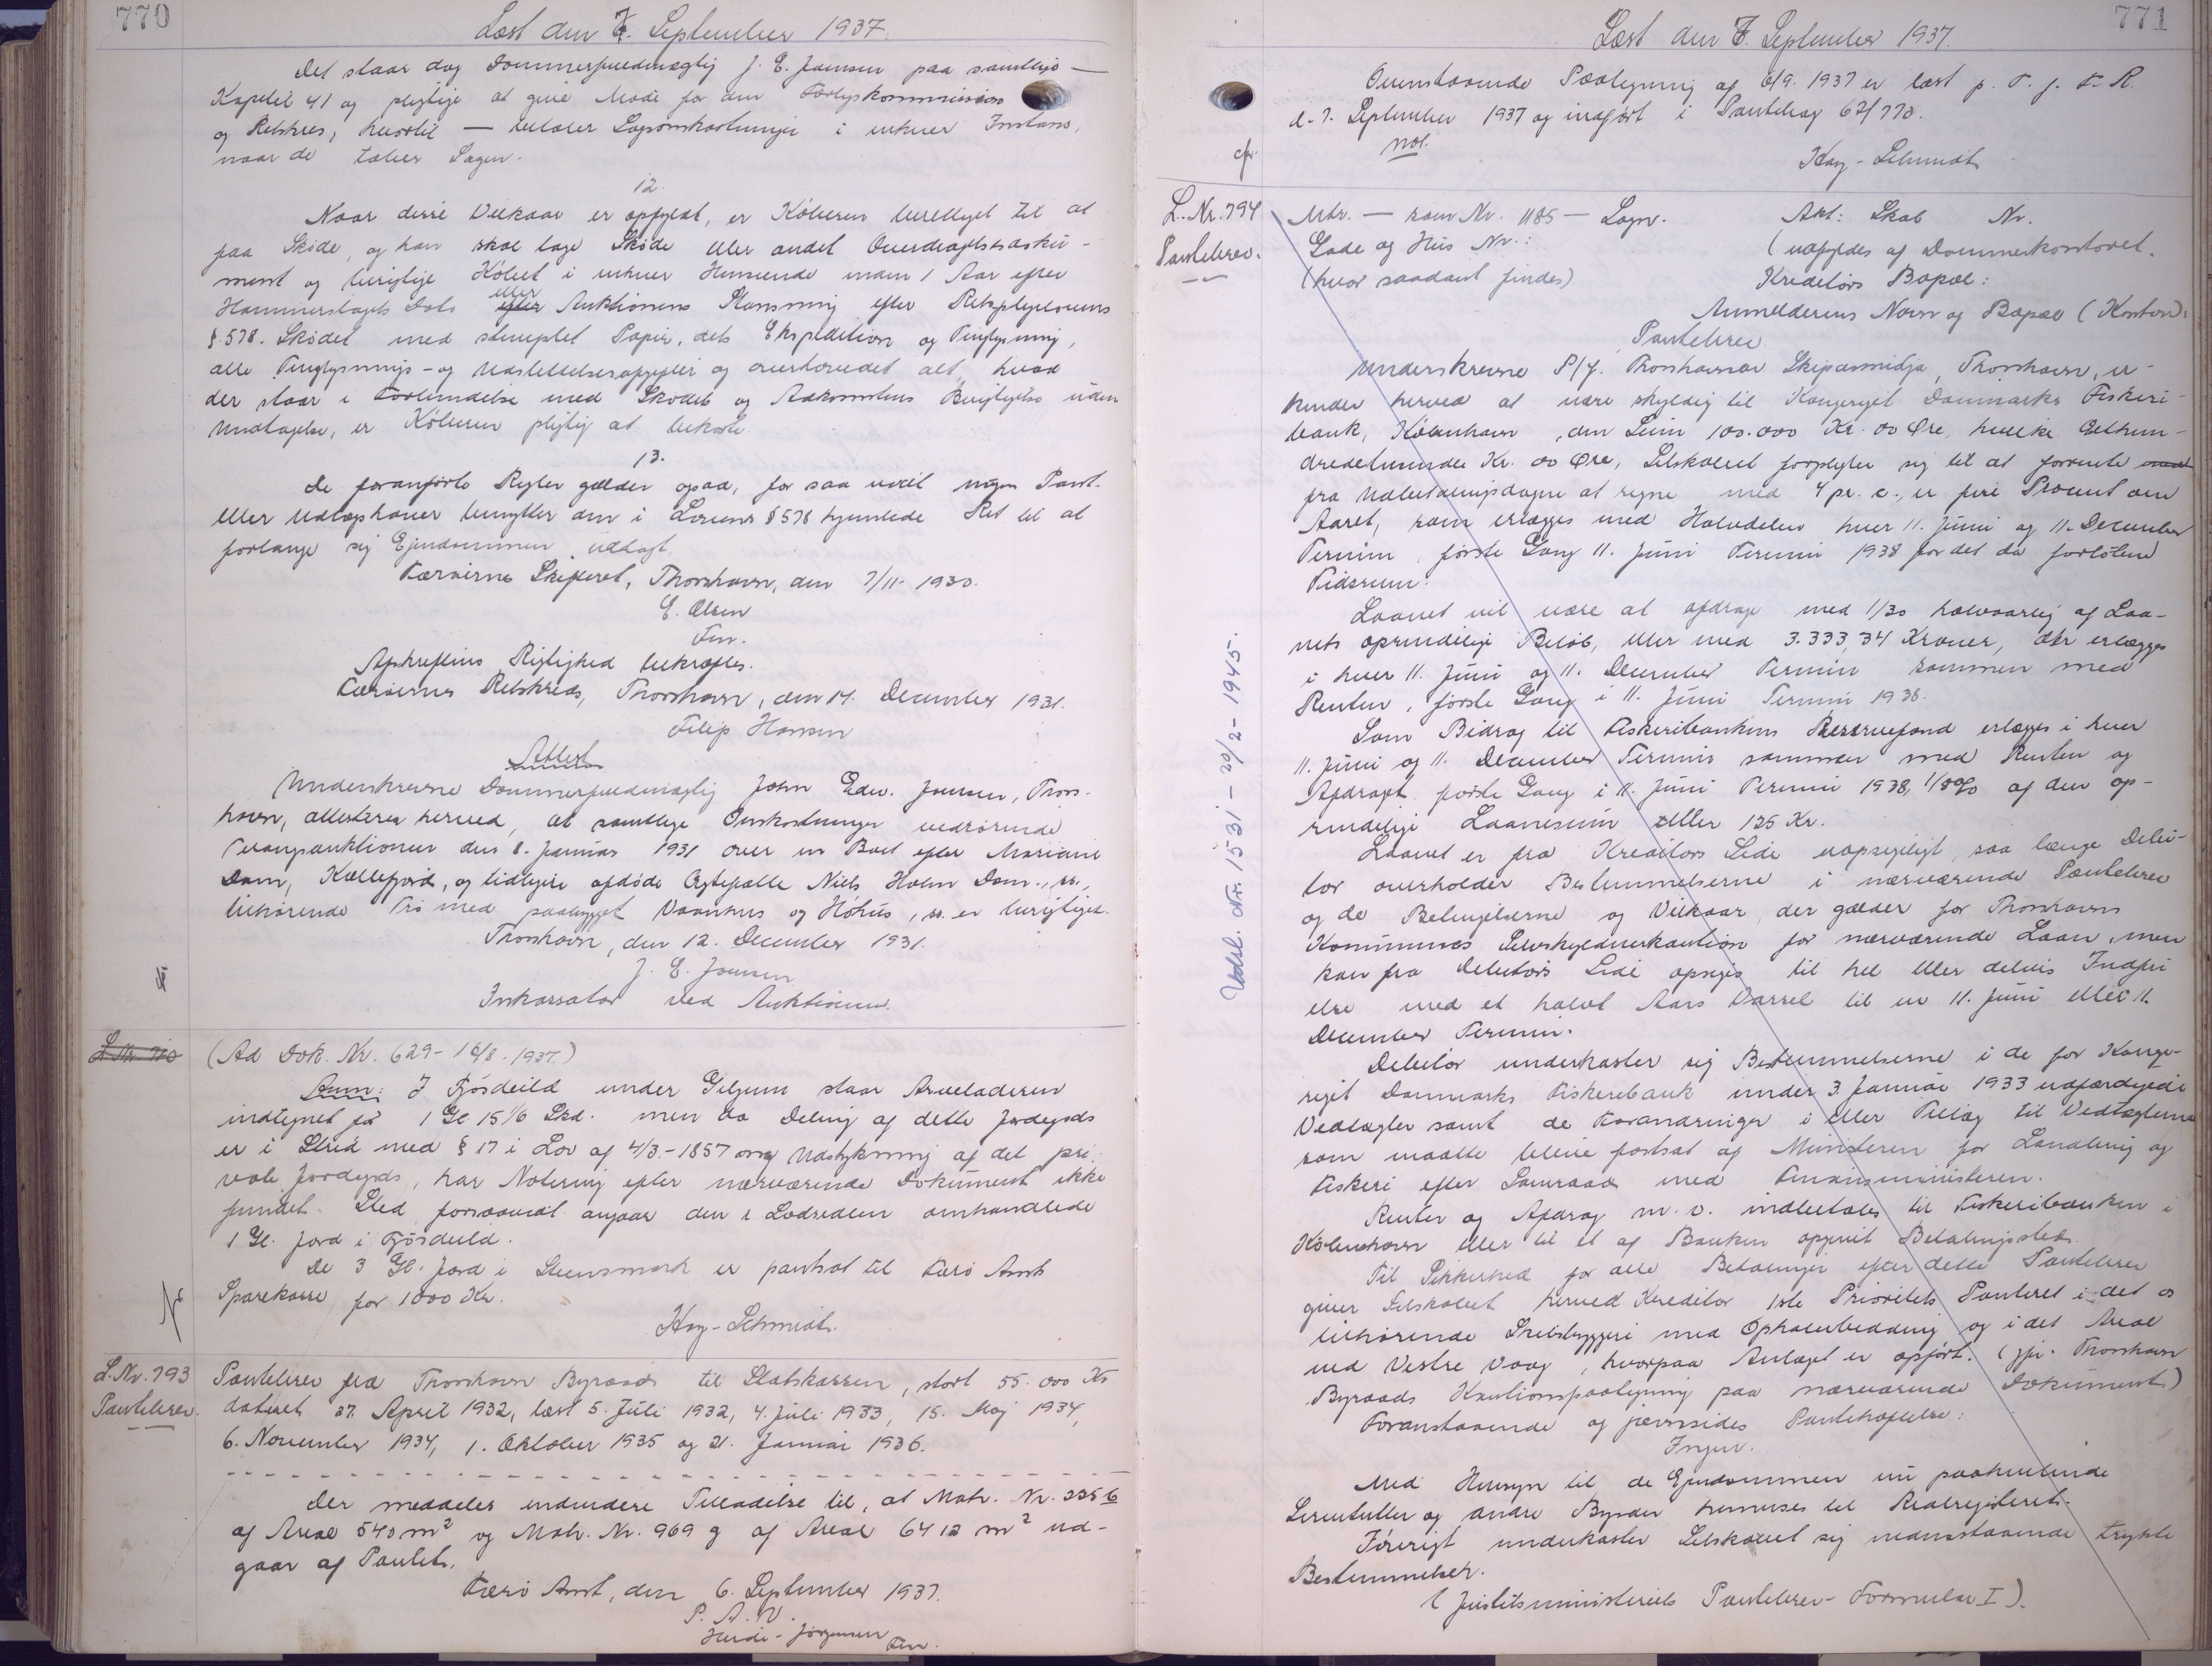 770
Læst den 7. September 1937.
Det staar dog Dommerfuldmægtig J. E. Joensen paa samtlige —
Kapitel 41 og pligtige at give Møde for den Forligskommission
og Retskres, hvortil — betaler Sagsomkostninger i enhver Instans,
naar de taber Sagen.
12.
Naar disse Vilkaar er opfyldt, er Køberen berettiget til at
faa Skøde, og han skal tage Skøde eller andet Overdragelsesdoku-
ment og berigtige Købet i enhver Henseende inden 1 Aar efter
Hammerslagets Dato eller efter Auktionens Slutning efter Retsplejelovens
§ 578. Skødet med stemplet Papir, dets Ekspedition og Tinglysning,
alle Tinglysnings- og Udslettelsesafgifter og overhovedet alt, hvad
der staar i Forbindelse med Skødet og Adkomstens Berigtigelse uden
Undtagelse, er Køberen pligtig at bekoste.
13.
De foranførte Regler gælder ogsaa, for saa vidt nogen Pant-
eller Udlægshaver benytter den i Lovens § 578 hjemlede Ret til at
forlange sig Ejendommen udlagt.
Færøernes Skifteret, Thorshavn, den 7/11- 1930.
E. Olsen
Fm.
Afskriftens Rigtighed bekræftes.
Færøernes Retskreds, Thorshavn, den 14. December 1931.
Filip Hansen
Attest
Underskrevne Dommerfuldmægtig John Edw. Joensen, Thors-
havn, attesterer herved, at samtlige Omkostninger vedrørende
Tvangsauktionen den 8. Januar 1931 over en Boet efter Mariane
Dam, Kollefjord, og tidligere afdøde Ægtefælle Niels Holm Dam,
tilhørende Trø med paabygget Vaanhus og Høhus, er berigtiget.
Thorshavn, den 12. December 1931.
J. E. Joensen
Inkassator ved Auktionen.
L. Nr. 770
(Ad Dok. Nr. 629- 16/8- 1937.)
Anm: I Fjósdeild under Giljum staar Arveladeren
indtegnet for 1 Gl 15 1/6 Skd. men da Deling af dette Jordegods
er i Strid med § 17 i Lov af 4/3.-1857 om Udstykning af det pri-
vate Jordegods, har Notering efter nærværende Dokument ikke
fundet Sted forsaavidt angaar den i Lodsedlen omhandlede
1 Gl. Jord i Fjósdeild.
De 3 Gl. Jord i Steensmark er pantsat til Færø Amts
Sparekasse for 1000 Kr.
Kay-Schmidt.
L. Nr. 793
Pantebrev.
Pantebrev fra Thorshavn Byraads til Statskassen, stort 55.000 Kr
dateret 27. April 1932, læst 5. Juli 1932, 4. Juli 1933, 15. Maj 1934,
6. November 1934, 1. Oktober 1935 og 21. Januar 1936.
Der meddeles endvidere Tilladelse til, at Matr. Nr. 335 b
af Areal 540 m² og Matr. Nr. 969 g af Areal 6412 m² ud-
gaar af Pantet.
Færø Amt, den 6. September 1937.
P. A. V.
Heide-Jørgensen
Fm.
771
Læst den 7. September 1937.
Ovenstaaende Paategning af 6/9. 1937 er læst p. T. f. F. R.
d. 7. September 1937 og indført i Pantebog 62/770.
Kay-Schmidt
L. Nr. 794
Pantebrev.
Mtr. — som Nr. 1185 — Sogn.
Akt: Skab Nr.
Gade og Hus Nr.:
(udfyldes af Dommerkontoret.
(hvor saadant findes)
Kreditors Bopæl:
Anmelderens Navn og Bopæl (Kontor):
Pantebrev
Underskrevne P/f. Thorshavnar Skipasmidja, Thorshavn, er-
kender herved at være skyldig til Kongeriget Danmarks Fiskeri-
bank, København, den Sum 100.000 Kr. 00 Øre, hvilke Ethun-
dredetusinde Kr. 00 Øre, Selskabet forpligter sig til at forrente
fra Udbetalingsdagen at regne med 4 pr. c., er fire Procent om
Aaret, som erlægges med Halvdelen hver 11. Juni og 11. December
Termin, første Gang 11. Juni Termin 1938 for det da forløbne
Tidsrum.
Laanet vil være at afdrage med 1/30 halvaarlig af Laa-
nets oprindelige Beløb, eller med 3.333,34 Kroner, der erlægges
i hver 11. Juni og 11. December Termin sammen med
Renten, første Gang i 11. Juni Termin 1938.
Som Bidrag til Fiskeribankens Reservefond erlægges i hver
11. Juni og 11. December Termin sammen med Renten og
Afdraget første Gang i 11. Juni Termin 1938, 1/8% af den op-
rindelige Laanesum eller 125 Kr.
Laanet er fra Kreditors Side uopsigeligt, saa længe Debi-
tor overholder Bestemmelserne i nærværende Pantebrev
og de Betingelserne og Vilkaar, der gælder for Thorshavns
Kommunes Selvskyldnerkaution for nærværende Laan, men
kan fra Debitors Side opsiges til hel eller delvis Indfri
else med et halvt Aars Varsel til en 11. Juni eller 11.
December Termin.
Debitor underkaster sig Bestemmelserne i de for Konge-
riget Danmarks Fiskeribank under 3. Januar 1933 udfærdigede
Vedtægter samt de Forandringer i eller Tillæg til Vedtægterne
som maatte blive fastsat af Ministeren for Landbrug og
Fiskeri efter Samraad med Finansministeren.
Renter og Afdrag m. v. indbetales til Fiskeribanken i
København eller til et af Banken opgivet Betalingssted.
Til Sikkerhed for alle Betalinger efter dette Pantebrev
giver Selskabet herved Kreditor 1ste Prioritets Panteret i det os
tilhørende Skibsbyggeri med Ophalerbedding og i det Areal
ved Vestre Vaag, hvorpaa Anlæget er opført. (jfr. Thorshavn
Byraads Kautionspaategning paa nærværende Dokument)
Foranstaaende og jævnsides Pantehæftelse:
Ingen.
Med Hensyn til de Ejendommen nu paahvilende
Servitutter og andre Byrder henvises til Realregisteret.
Iøvrigt underkaster Selskabet sig nedenstaaende trykte
Bestemmelser.
(Justitsministeriets Pantebrev-Formular I).
Udsl. Nr. 1531 - 20/2- 1945.